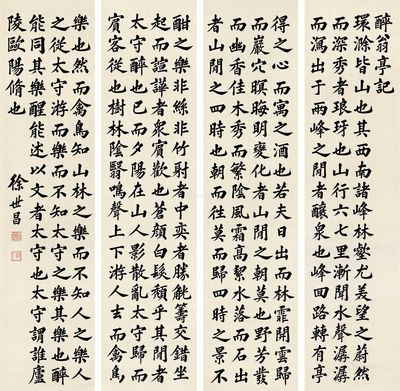 醉翁亭記
環滁皆山也其西南諸峰林壑尤美望之蔚然
而深秀者琅玡也山行六七里漸聞水聲潺潺
而瀉出于兩峰之間者釀泉也峰回路轉有亭
得之心而寓之酒也若夫日出而林霏開雲歸
而巖穴暝晦明變化者山間之朝莫也野芳發
而幽香佳木秀而繁陰風霜高絜水落而石出
者山間之四時也朝而往莫而歸四時之景不
酣之樂非絲非竹射者中奕者勝觥籌交錯坐
起而諠譁者衆賓歡也蒼顏白髮頹乎其間者
太守醉也已而夕陽在山人影散亂太守歸而
賓客從也樹林陰翳鳴聲上下游人去而禽鳥
樂也然而禽鳥知山林之樂而不知人之樂人
之從太守游而樂而不知太守之樂其樂也醉
能同其樂醒能述以文者太守也太守謂誰廬
陵歐陽脩也
徐世昌